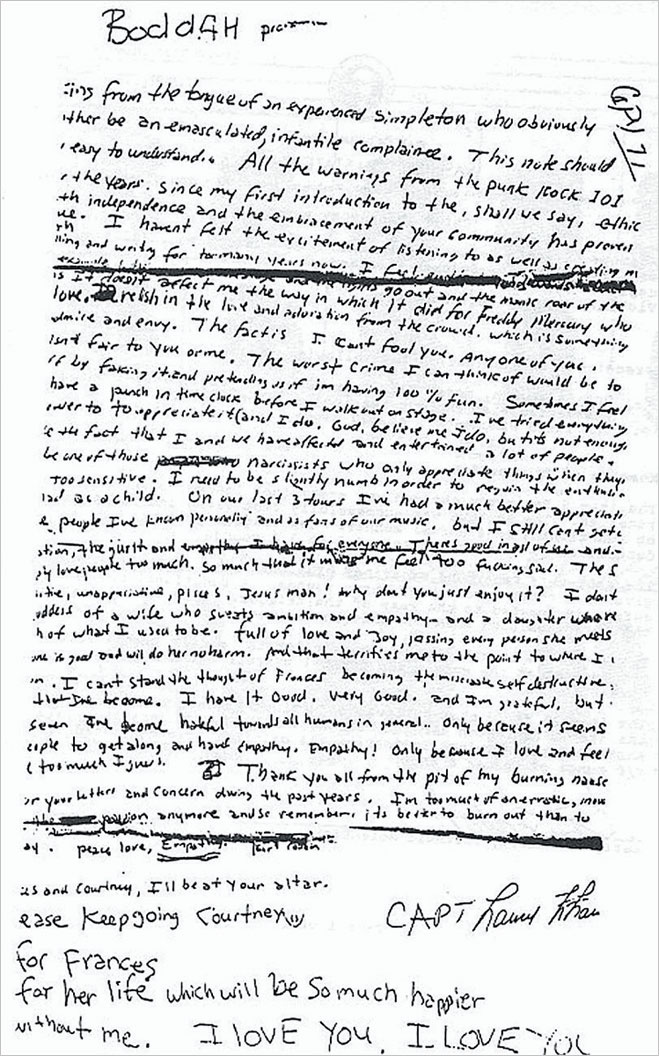 BoddAH
ing from the tongue of an experienced simpleton who obviously
ther be an emasculated, infantile complainee. This note should
easy to understand.. All the warnings from the punk rock 101
the years. Since my first introduction to the, shall we say, ethic
th independence and the embracement of your community has proven
ue. I havent felt the excitement of listening to as well as creating m
and for too many years now. I feel
and the lights go out and the manic roar of the
is it doesnt affect me the way in which it did for Freddy Mercury who
love, relish in the love and adoration from the crowd. which is something
dmire and envy. The fact is I cant fool you. Anyone of you.
isnt fair to you or me. The worst crime I can think of would be to
ff by faking it and pretending as if im having 100% fun. Sometimes I feel
have a punch in time clock before I walk out on stage. I've tried everything
ower to to appreciate it (and I do. God, believe me I do, but its not enough.
e the fact that I and we have affected and entertained a lot of people.
be one of those narcissists who only appreciate things when they
Too sensitive. I need to be slightly numb in order to regain the enthusia
had as a child. On our last 3 tours I've had a much better appreciati
e people I've known personally and as fans of our music, but I still cant get
ation, the guilt and empathy I have for everyone. Theres good in all of us and
ply love people too much. So much that it makes me feel too fucking sad. The s
itive, unappreciative, pisces, Jesus man! why dont you just enjoy it? I dont
oddess of a wife who sweats ambition and empathy. and a daughter who re
h of what I used to be. full of love and joy, kissing every person she meets
one is good and will do her no harm. And that terrifies me to the point to where I
n. I cant stand the thought of Frances becoming the miserable self destructive,
that Ive become. I have it Good. Very Good. and I'm grateful, but
seven Ive become hateful towards all humans in general.. Only because it seems
eople to get along and have empathy. Empathy! Only because I love and feel
too much I guess. Thank you all from the pit of my burning nause
or your letters and concern during the past years. I'm too much of an erratic, moo
the passion anymore and so remember, its better to burn out than to
ay. peace love, Empathy. kurt cobain
es and Courtney, I'll be at your altar.
ease Keep going Courtney
for Frances
for her life which will be so much happier
without me. I LOVE YOU, I LOVE YOU